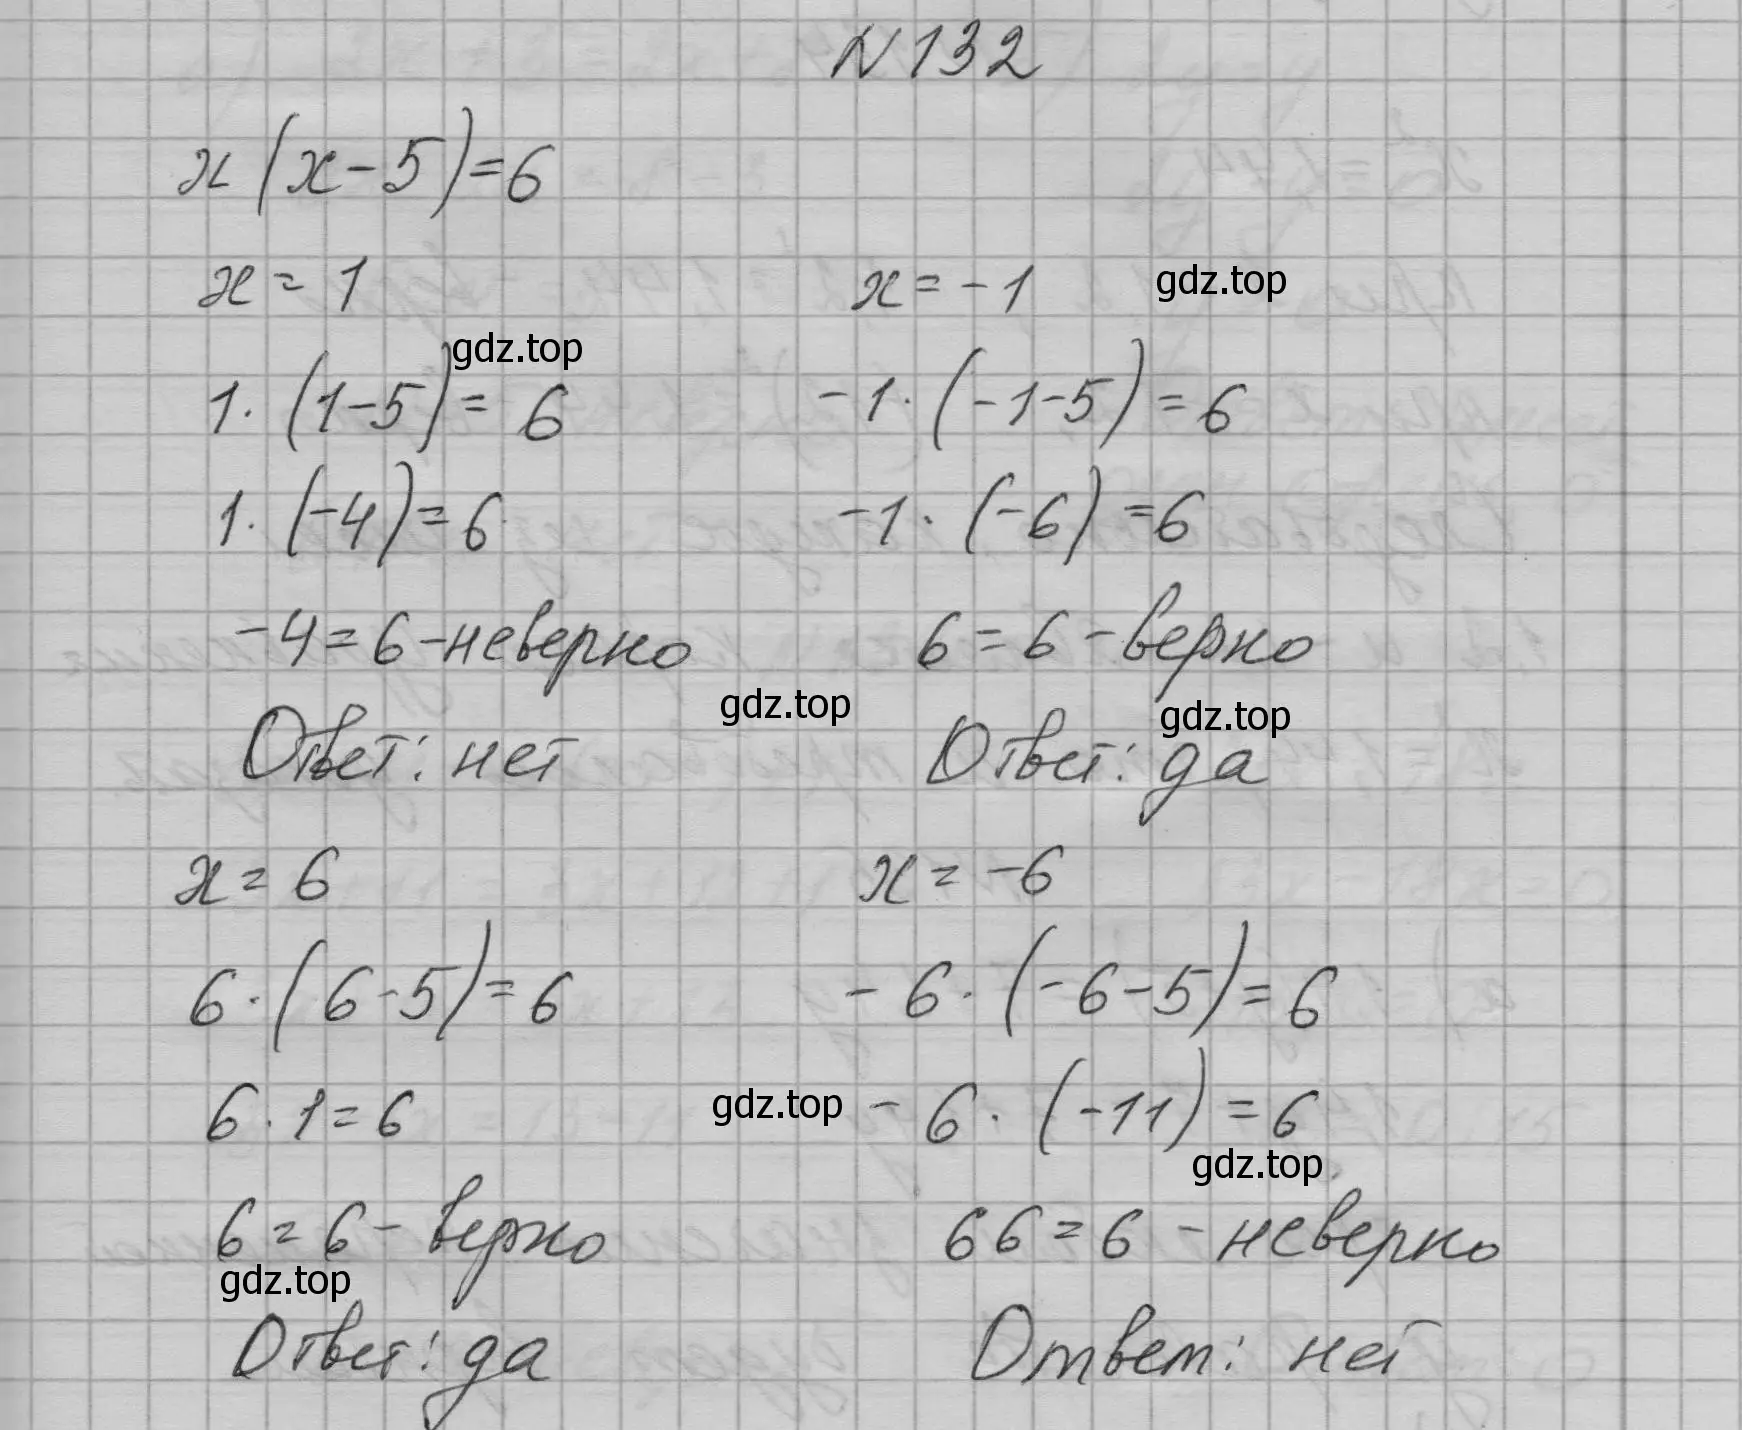 N132
x(x-5)=6
x = 1
gdz.top
1·(1-5)= 6
1·(-4)=6
-4=6-неверно
Ответ: нет
x=-1
gdz.top
-1·(-1-5)=6
-1·(-6)=6
6=6-верно
gdz.top
gdz.top
Ответ: да
x=6
6·(6-5)=6
6·1=6
6=6-верно
gdz.top
Ответ: да
x=-6
-6·(-6-5)=6
gdz.top
-6·(-11)=6
gdz.top
66=6-неверно
Ответ: нет